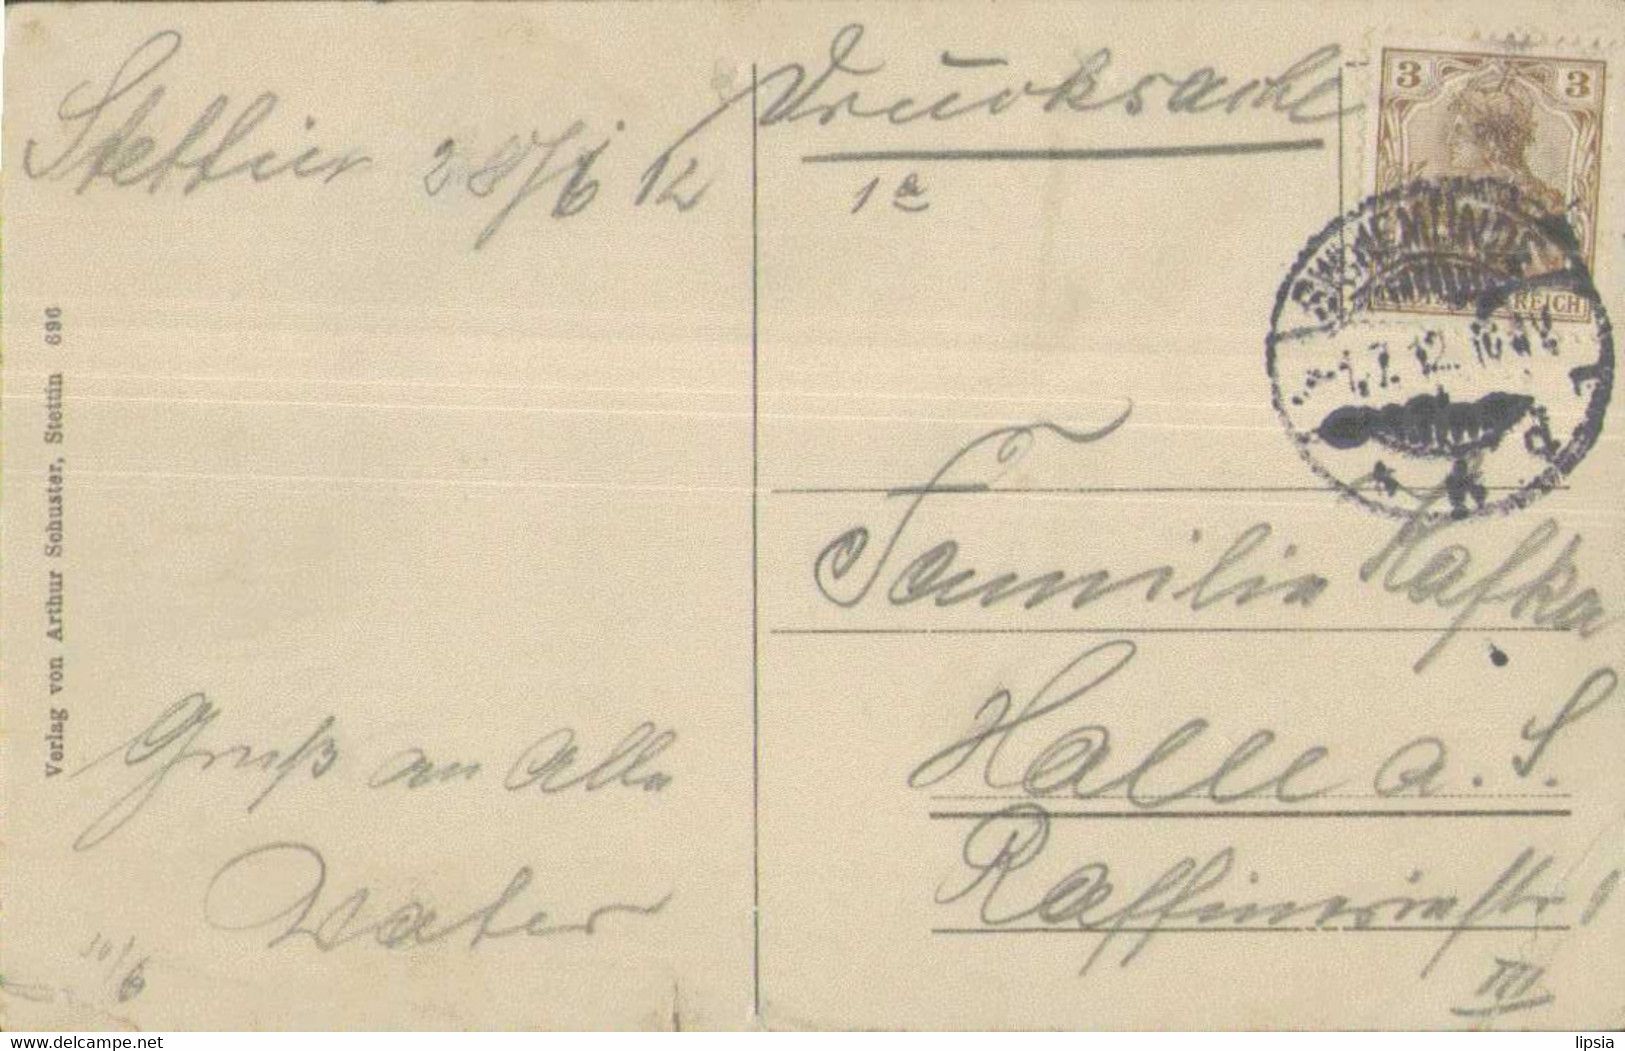 Stettin 28/6 12
Drucksache
1a
3 3
REICH
SWINEMÜNDE
1.7.12. 10
Verlag von Arthur Schuster, Stettin 696
Familie Kafka
Halle a. S.
Raffineriestr. 1
III
Gruß an Alle
Vater
30/6
Delcampe.net
lipsia